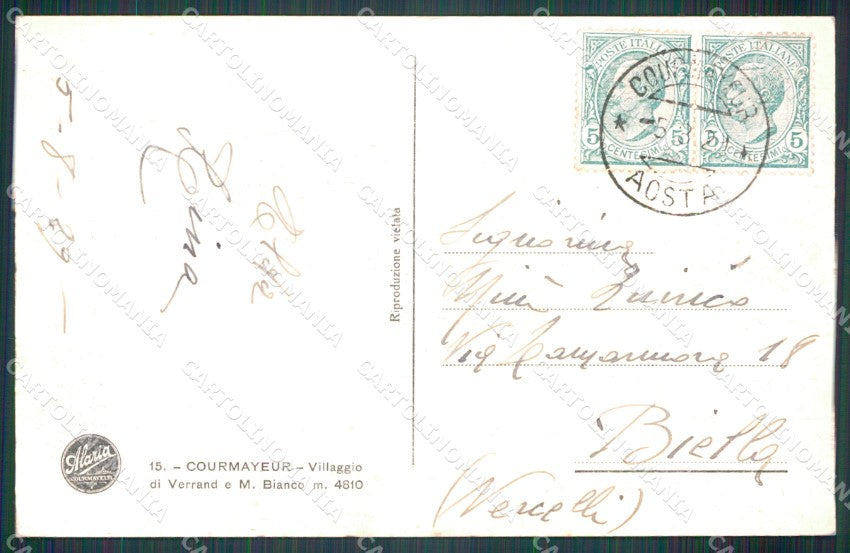 5-8-29-
POSTE ITALIANE
5 5
CENTESIMI
POSTE ITALIANE
5
CENTESIMI
COURMAYEUR
5 8
AOSTA
Signorina
Via 18
Biella
(Vercelli)
Riproduzione vietata
Alaria
COURMAYEUR
15. – COURMAYEUR – Villaggio
di Verrand e M. Bianco m. 4810
CARTOLINOMANIA